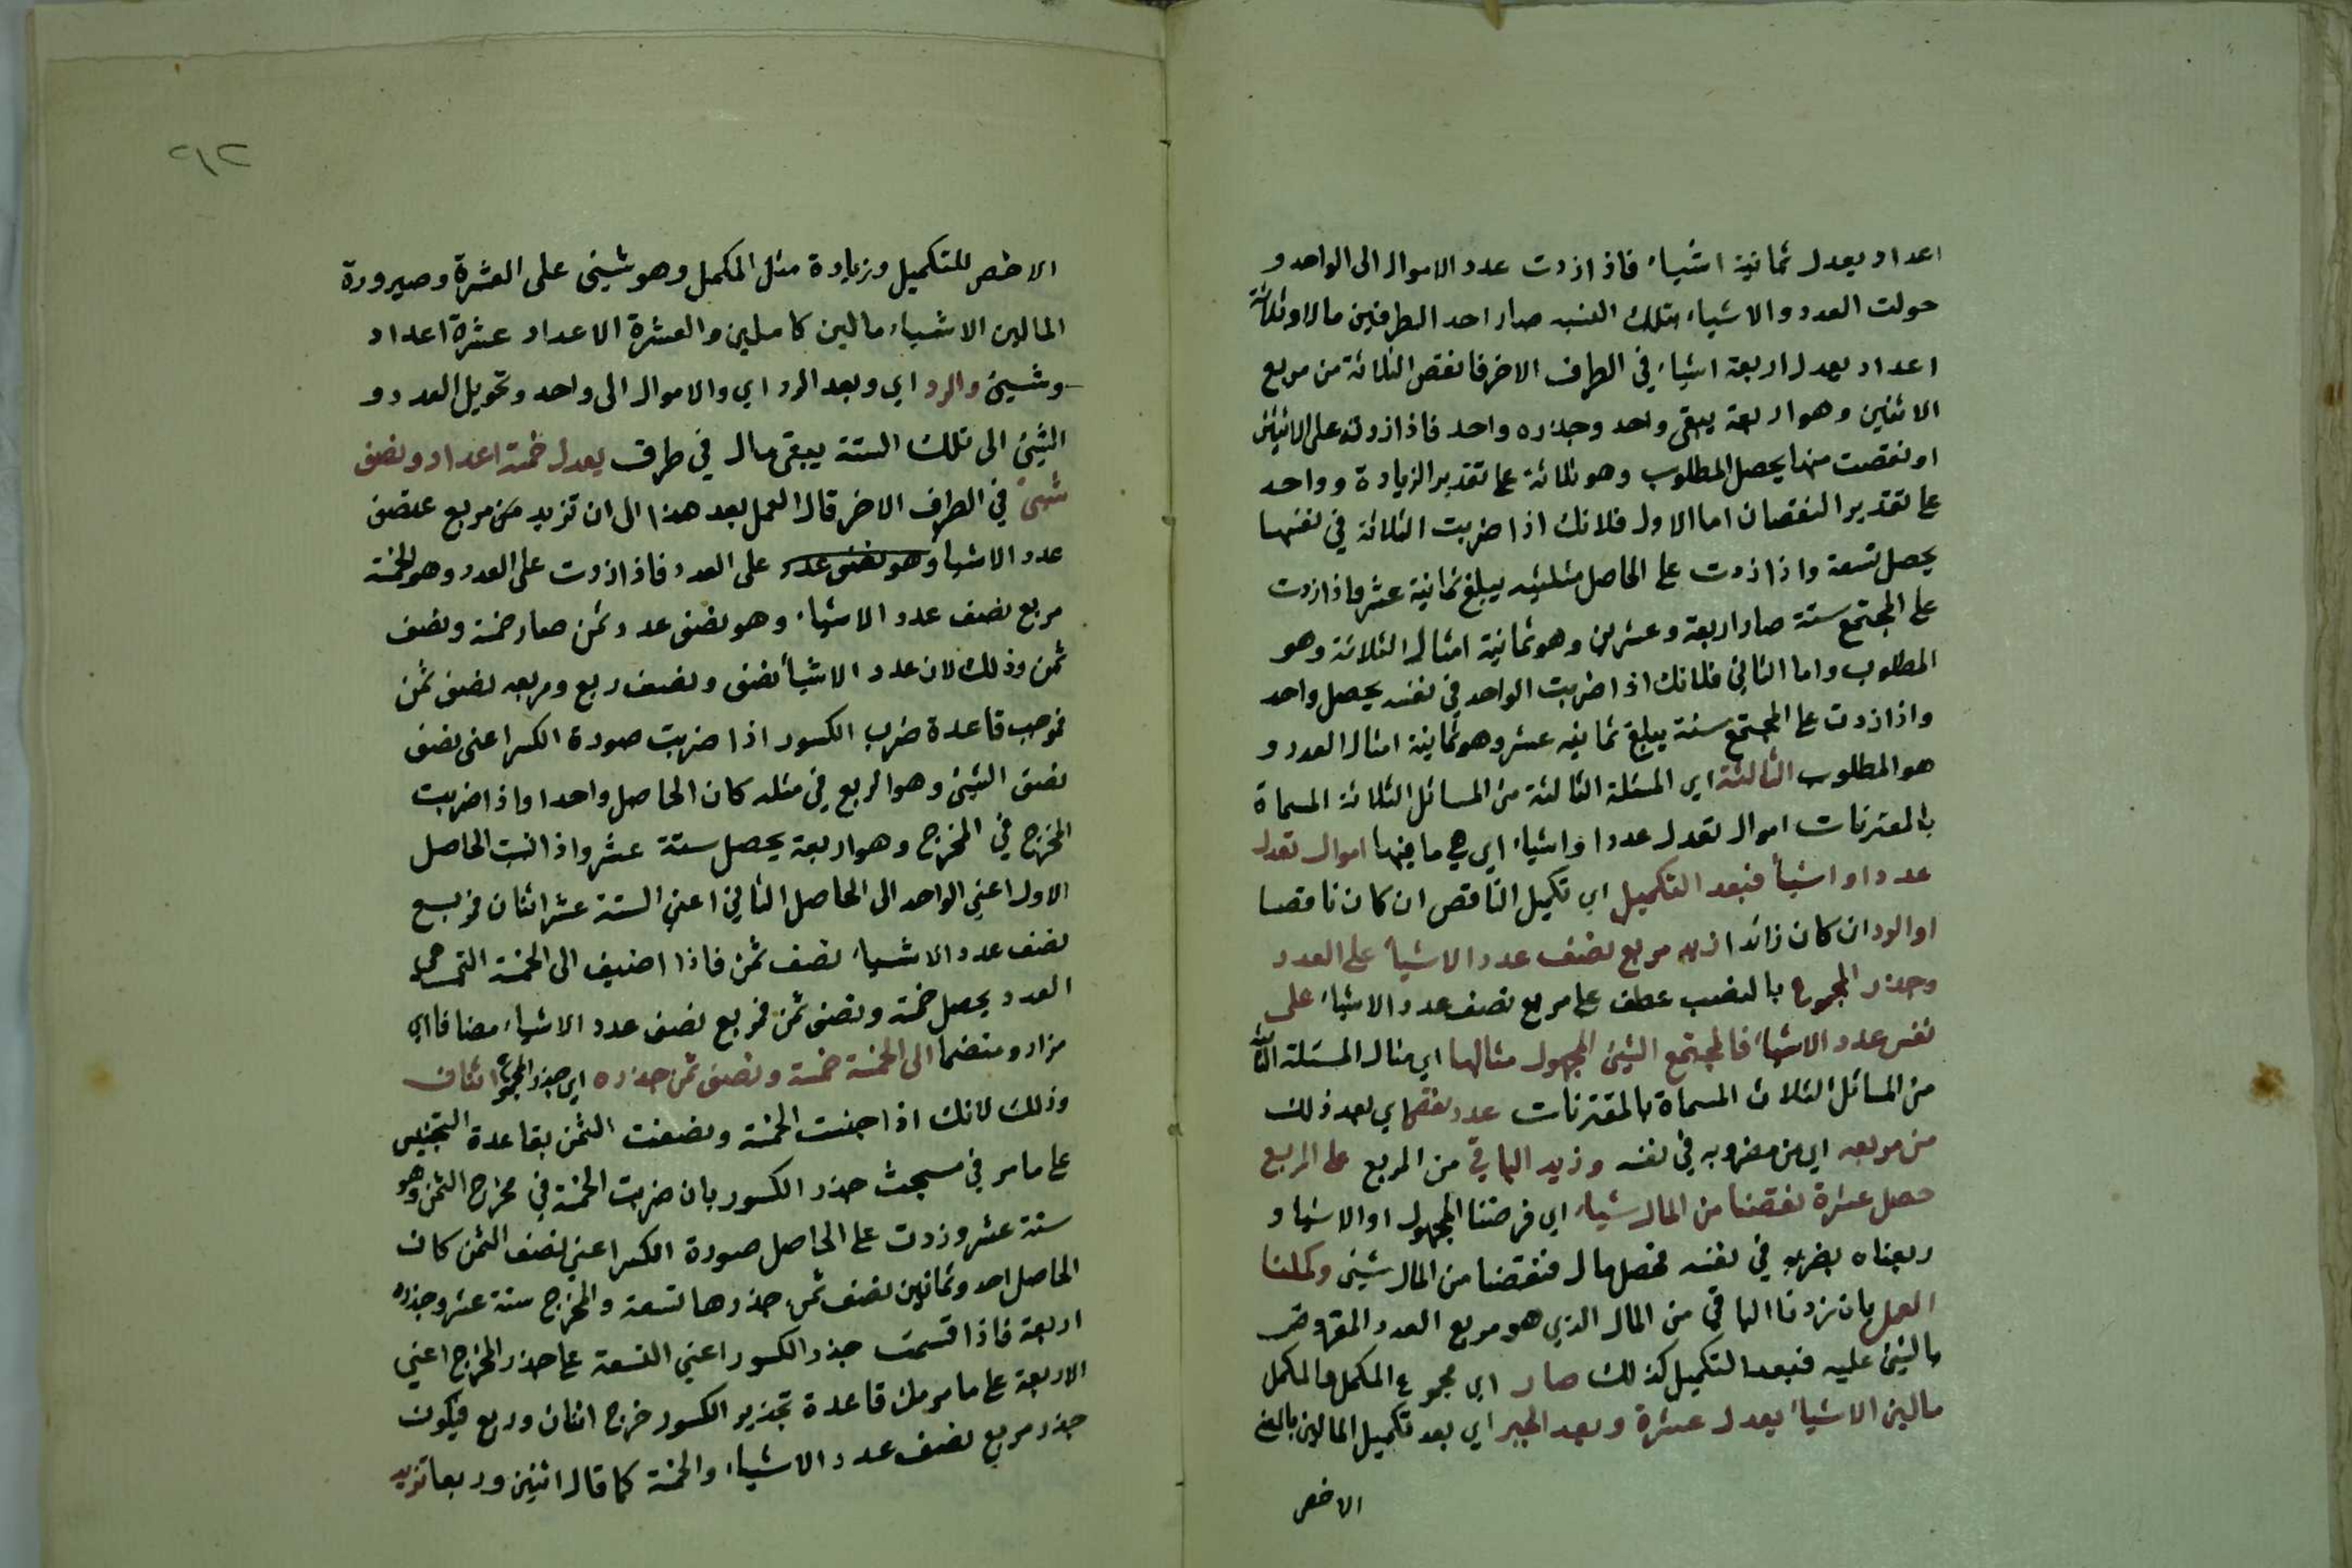 اعداد يعدل ثمانية اشياء فاذا زدت عدد الاموال الى الواحد و
حولت العدد والاشياء بتلك النسبه صار احد الطرفين مالا وثلاثة
اعداد يعدل اربعة اشياء في الطرف الاخر فانقص الثلاثة من مربع
الاثنين وهو اربعة يبقى واحد وجذره واحد فاذا زدته على الاثنين
او نقصت منها يحصل المطلوب وهو ثلاثة على تقدير الزيادة وواحد
على تقدير النقصان اما الاول فلانك اذا ضربت الثلاثة في نفسها
يحصل تسعة واذا زدت على الحاصل مثليه يبلغ ثمانية عشر فاذا زدت
على المجتمع ستة صار اربعة وعشرين وهو ثمانية امثال الثلاثة وهو
المطلوب واما الثاني فلانك اذا ضربت الواحد في نفسه يحصل واحد
واذا زدت على المجتمع ستة يبلغ ثمانيه عشر وهو ثمانية امثال العدد و
هو المطلوب الثالثة اي المسئلة الثالثة من المسائل الثلاثة المسماة
بالمقترنات اموال تعدل عددا واشياء اي هي ما فيها اموال تعدل
عددا واشيأ فبعد التكميل اي تكميل الناقص ان كان ناقصا
او الرد ان كان زائدا زيد مربع نصف عدد الاشيأ على العدد
وجذر المجموع بالنصب عطف على مربع نصف عدد الاشياء على
نصف عدد الاشياء فالمجتمع الشئ المجهول مثالها اي مثال المسئلة الثالثة
من المسائل الثلاث المسماة بالمقترنات عدد نقص اي بعد ذلك
من مربعه اي من مضروبه في نفسه وزيد الباقي من المربع على المربع
حصل عشرة نقصنا من المال شيأ اي فرضنا المجهول اولا شيا و
ربعناه بضربه في نفسه فحصل مال فنقصنا من المال شيئى وكملنا
العمل بان زدنا الباقي من المال الذي هو مربع العدد المفروض
بالشئ عليه فبعد التكميل كذلك صار اي مجموع المكمل والمكمل
مالين الاشياء يعدل عشرة وبعد الجبر اي بعد تكميل المالين بالشئ
الاخص
٢١٢
الاخص للتكميل وزيادة مثل المكمل وهو شيئى على العشرة وصيرورة
المالين الاشياء مالين كاملين والعشرة الاعداد عشرة اعداد
وشيئ والرد اي وبعد الرد اي والاموال الى واحد وتحويل العدد و
الشئ الى تلك الستة يبقى مال في طرف يعدل خمسة اعداد ونصف
شئ في الطرف الاخر قال العمل بعد هذا الى ان تزيد من مربع نصف
عدد الاشيا وهو نصف عدد على العدد فاذا زدت على العدد وهو الخمسة
مربع نصف عدد الاشياء وهو نصف عدد ثمن صار خمسة ونصف
ثمن وذلك لان عدد الاشيأ نصف ونصفه ربع ومربعه نصف ثمن
بموجب قاعدة ضرب الكسور اذا ضربت صورة الكسر اعنى نصف
نصف الشئ وهو الربع في مثله كان الحاصل واحدا واذا ضربت
المخرج في المخرج وهو اربعة يحصل ستة عشر واذا نسبت الحاصل
الاول اعني الواحد الى الحاصل الثاني اعني الستة عشر اثنان فمربع
نصف عدد الاشياء نصف ثمن فاذا اضيف الى الخمسة التي هي
العدد يحصل خمسة ونصف ثمن فمربع نصف عدد الاشياء مضافا اي
مزاد ومنضما الى الخمسة خمسة ونصف ثمن جذره اي جذر المجموع اثنان
وذلك لانك اذا جنست الخمسة ونصف الثمن بقاعدة التجنيس
على ما مر في مبحث جذر الكسور بان ضربت الخمسة في مخرج الثمن وهو
ستة عشر وزدت على الحاصل صورة الكسر اعني نصف الثمن كان
الحاصل احد وثمانين نصف ثمن جذرها تسعة والمخرج ستة عشر وجذره
اربعة فاذا قسمت جذر الكسور اعني التسعة على جذر المخرج اعني
الاربعة على ما مر من قاعدة تجذير الكسور خرج اثنان وربع فيكون
جذر مربع نصف عدد الاشياء والخمسة كما قال اثنين وربعا تزيد